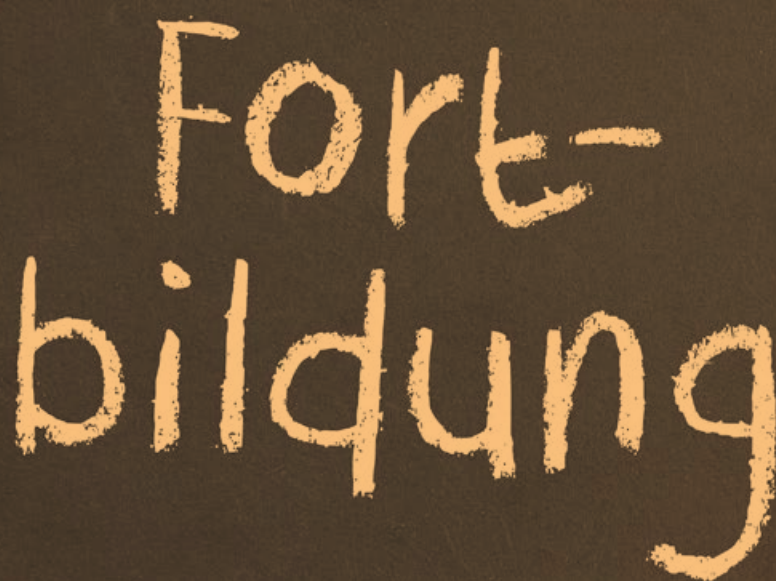 Fort-
bildung